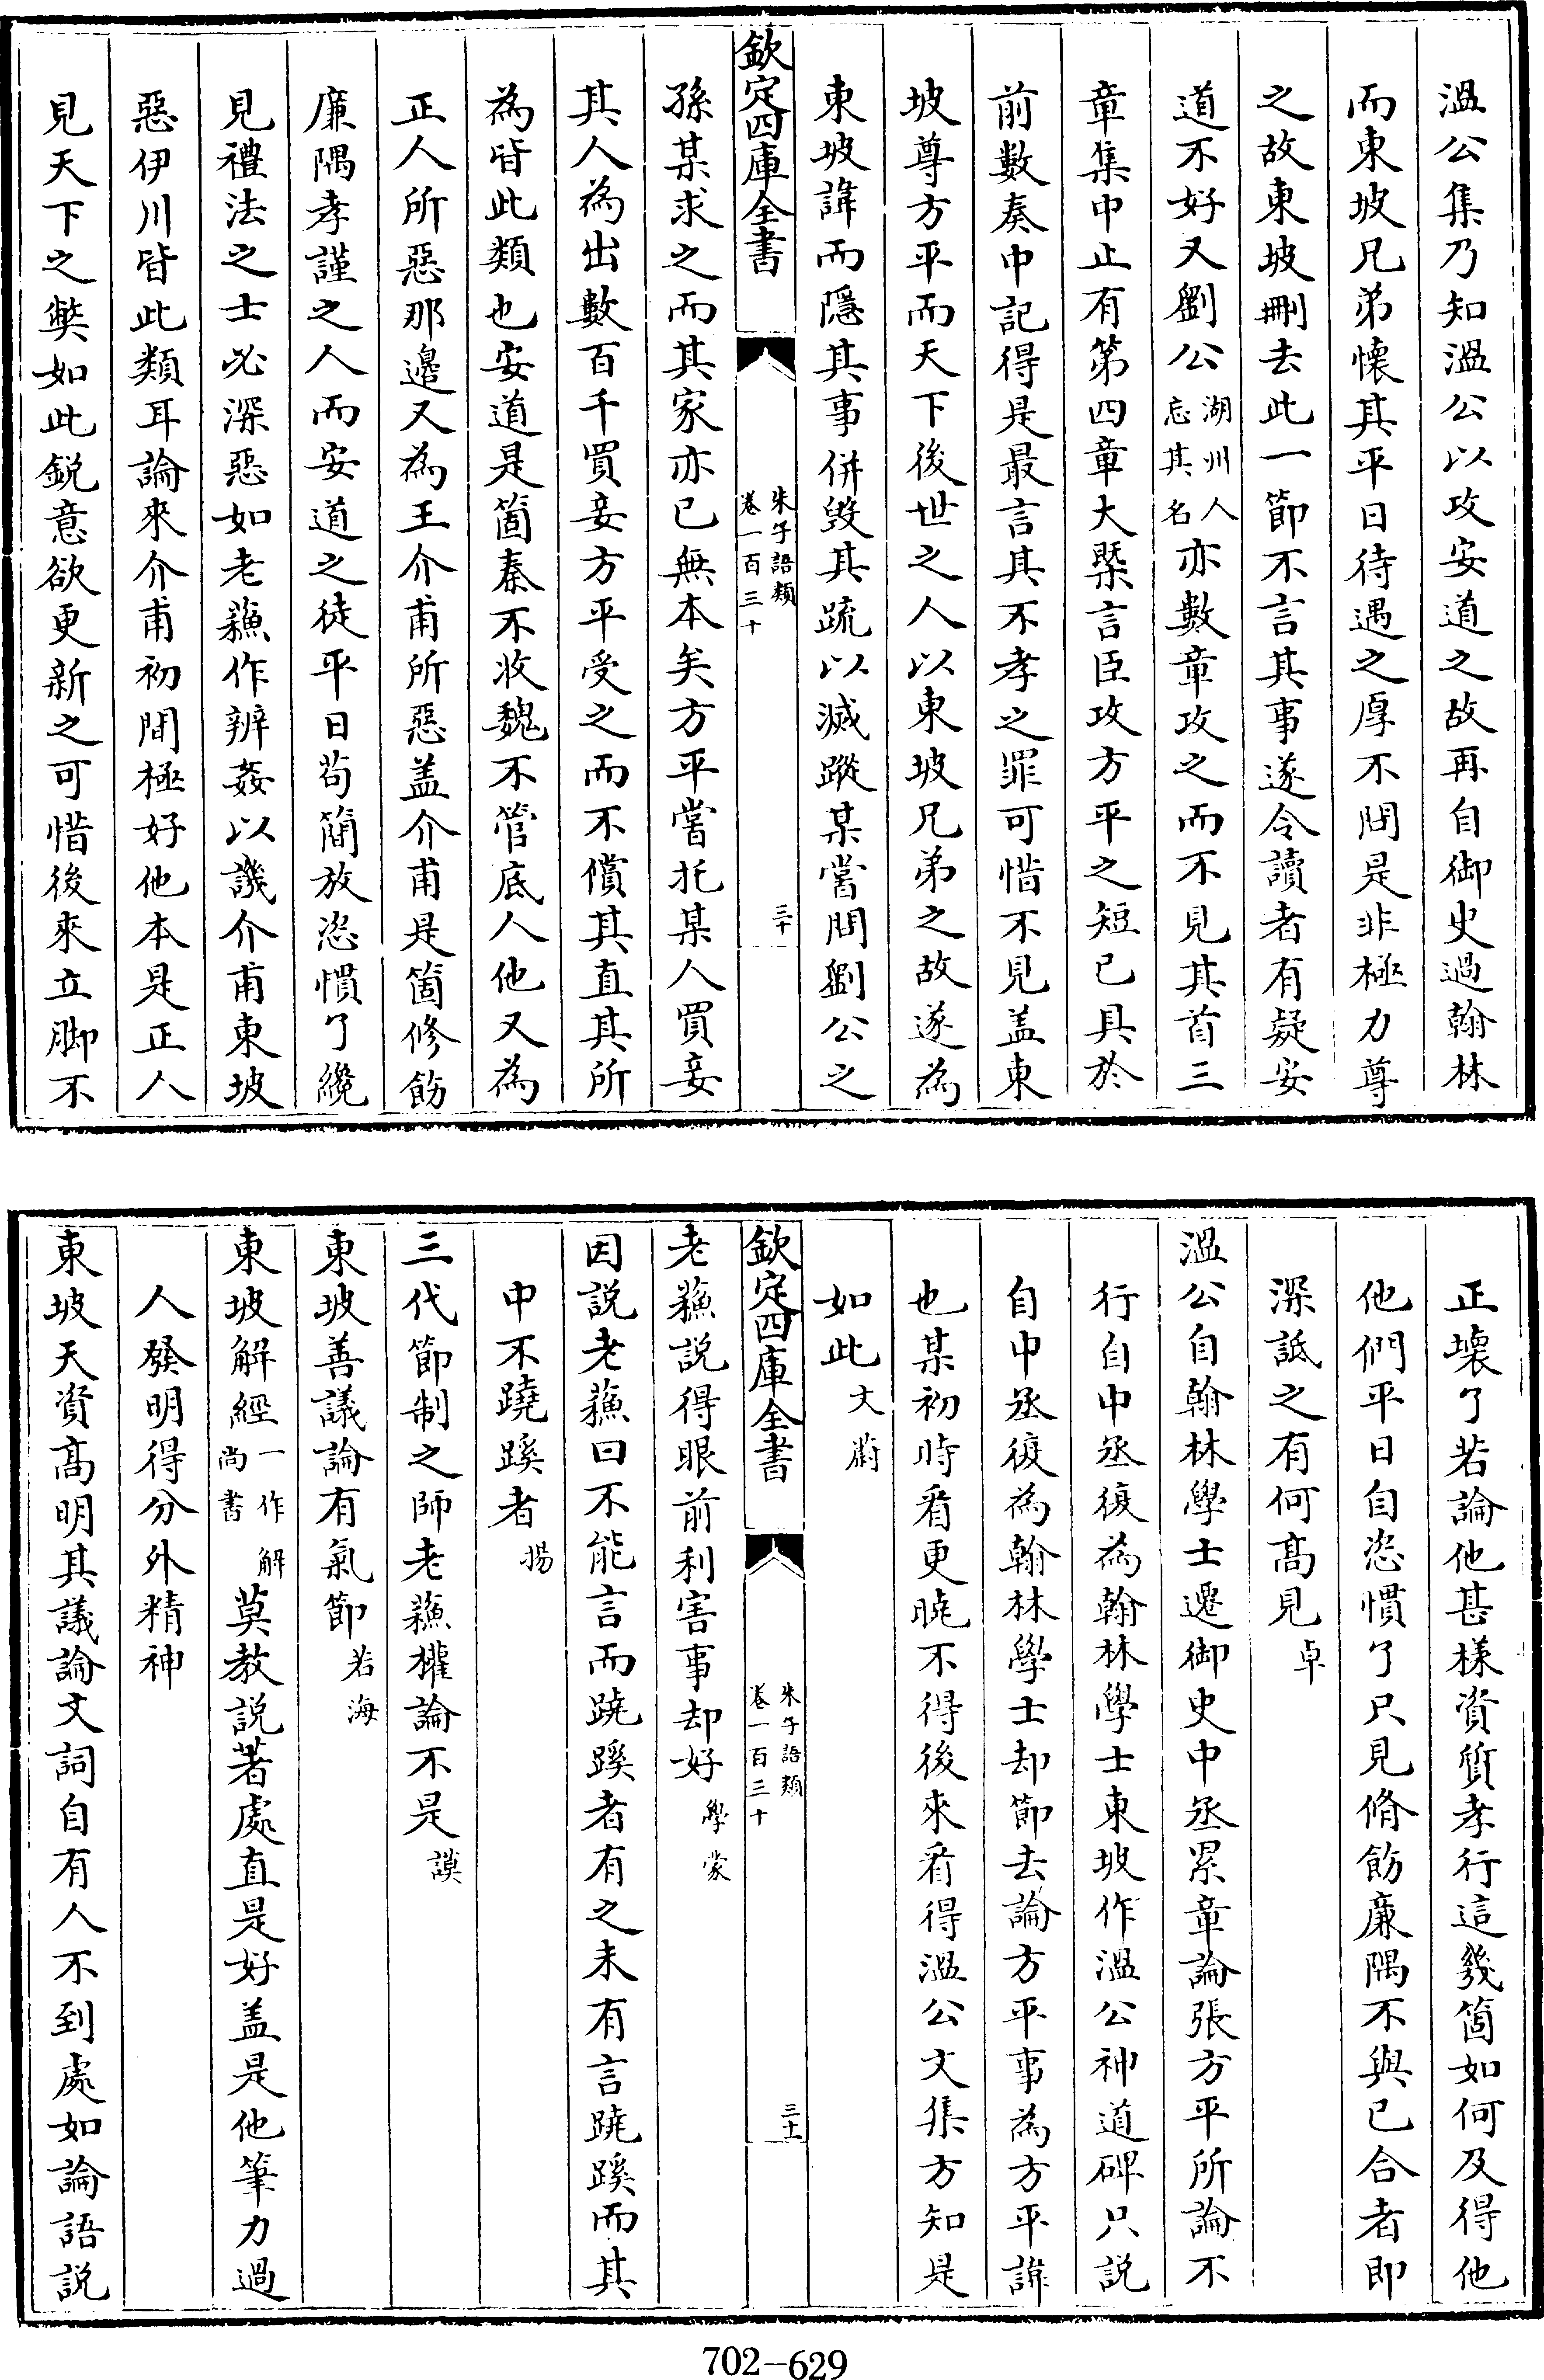 溫公集乃知溫公以攻安道之故再自御史過翰林
而東坡兄弟懷其平日待遇之厚不問是非極力尊
之故東坡刪去此一節不言其事遂令讀者有疑安
道不好又劉公湖州人忘其名亦數章攻之而不見其首三
章集中止有第四章大槩言臣攻方平之短已具於
前數奏中記得是最言其不孝之罪可惜不見盖東
坡尊方平而天下後世之人以東坡兄弟之故遂為
東坡諱而隱其事併毀其疏以滅蹤某嘗問劉公之
欽定四庫全書
朱子語類
卷一百三十
三十
孫某求之而其家亦已無本矣方平嘗托某人買妾
其人為出數百千買妾方平受之而不償其直其所
為皆此類也安道是箇秦不收魏不管底人他又為
正人所惡那邉又為王介甫所惡盖介甫是箇修飭
廉隅孝謹之人而安道之徒平日茍簡放恣慣了纔
見禮法之士必深惡如老蘓作辨姦以譏介甫東坡
惡伊川皆此類耳論來介甫初間極好他本是正人
見天下之獘如此鋭意欲更新之可惜後來立脚不
正壞了若論他甚様資質孝行這幾箇如何及得他
他們平日自恣慣了只見脩飭廉隅不與已合者即
深詆之有何髙見卓
溫公自翰林學士遷御史中丞累章論張方平所論不
行自中丞復為翰林學士東坡作溫公神道碑只說
自中丞復為翰林學士却節去論方平事為方平諱
也某初時看更曉不得後來看得溫公文集方知是
如此文蔚
欽定四庫全書
朱子語類
卷一百三十
三十一
老蘓說得眼前利害事却好學蒙
因說老蘓曰不能言而蹺蹊者有之未有言蹺蹊而其
中不蹺蹊者揚
三代節制之師老蘓權論不是謨
東坡善議論有氣節若海
東坡解經一作解尚書莫教說著處直是好盖是他筆力過
人發明得分外精神
東坡天資髙明其議論文詞自有人不到處如論語說
702-629